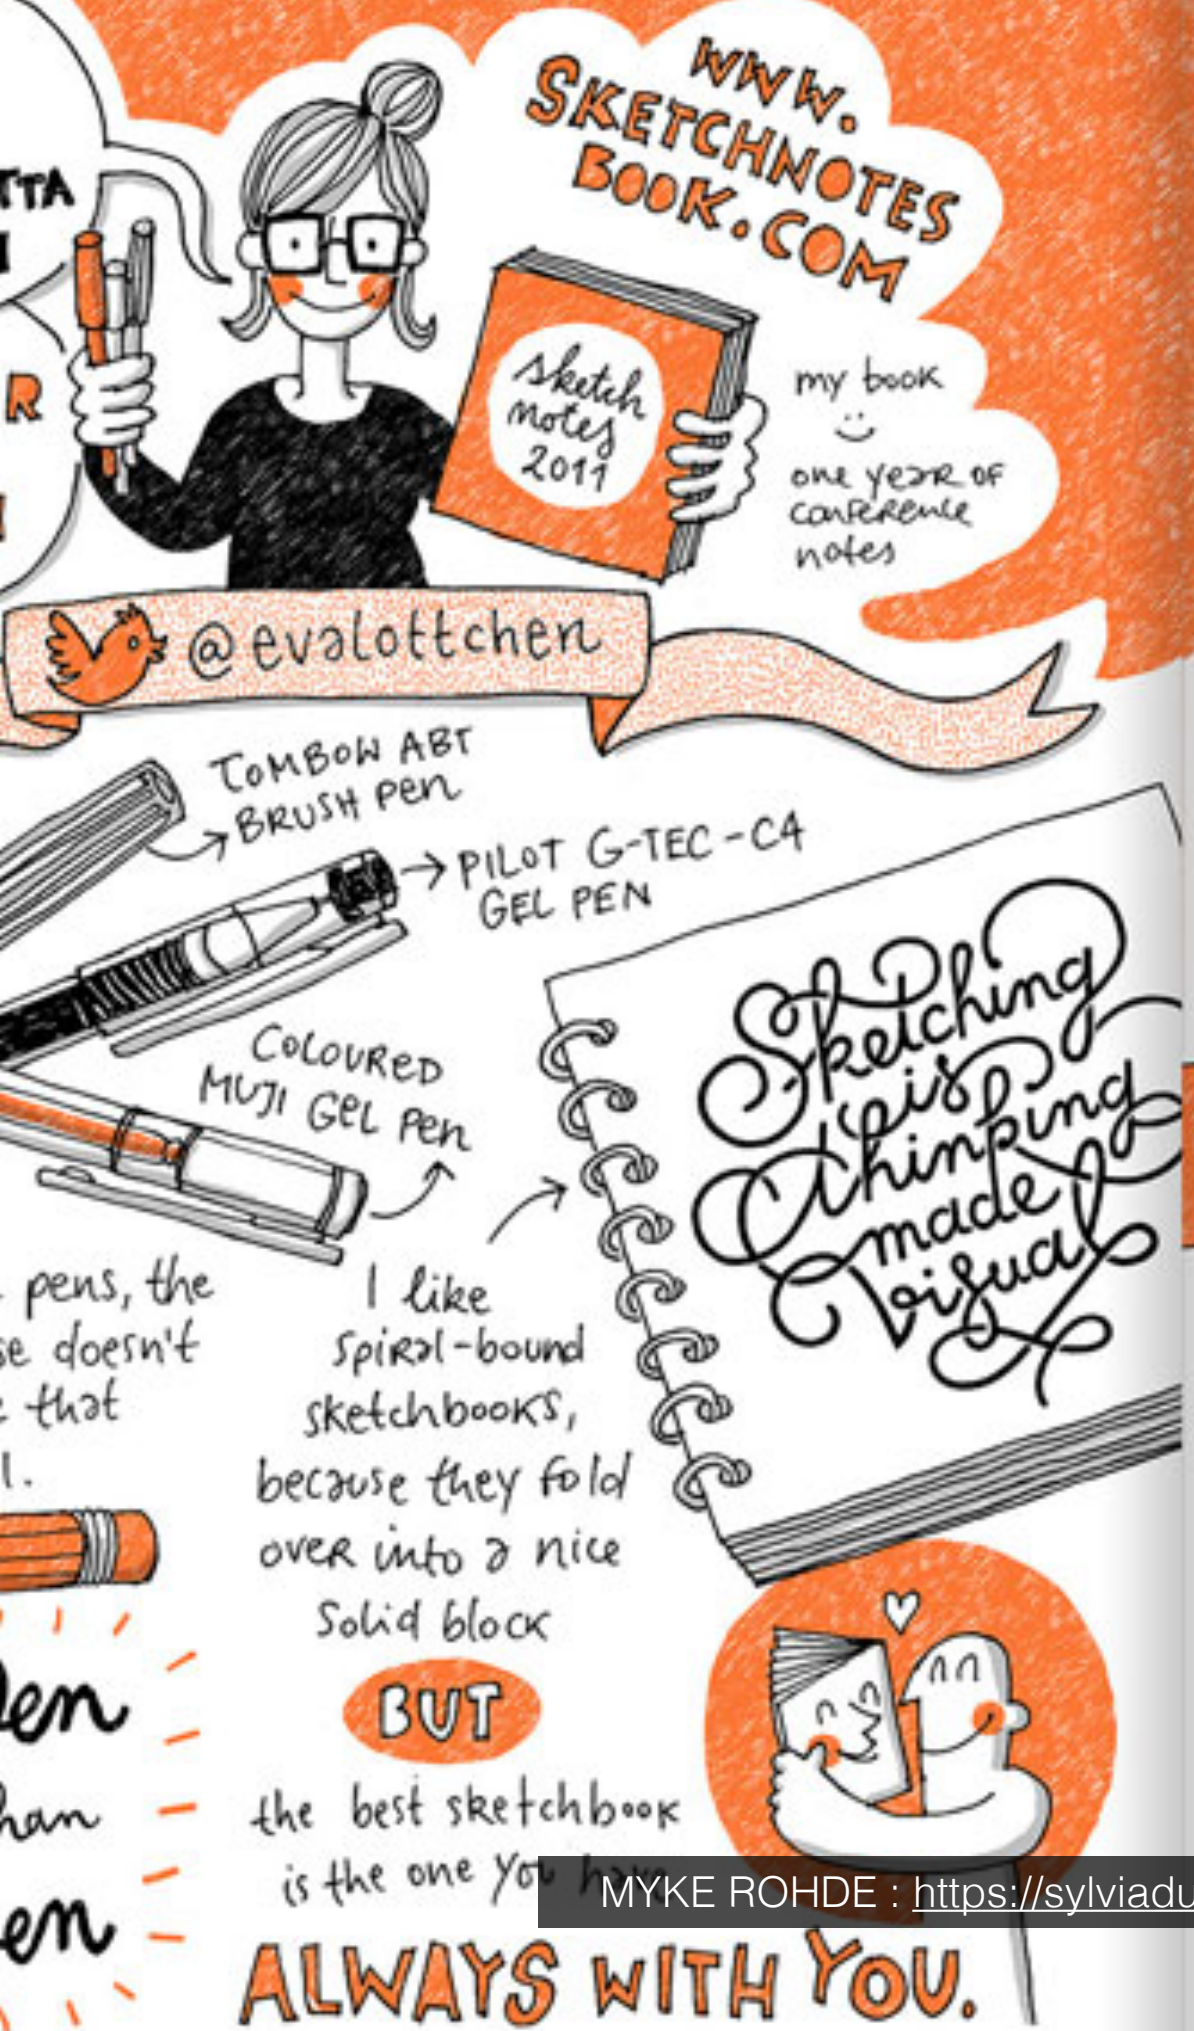 TTA
R
www.
SKETCHNOTES
BOOK.COM
sketch
notes
2011
my book
one year of
conference
notes
@evalottchen
TOMBOW ABT
BRUSH pen
PILOT G-TEC-C4
GEL PEN
COLOURED
MUJI GEL pen
Sketching
is
thinking
made
visual
pens, the
se doesn't
that
l.
I like
spiral-bound
sketchbooks,
because they fold
over into a nice
solid block
BUT
the best sketchbook
is the one you have
ALWAYS WITH YOU.
en
han
en
MYKE ROHDE : https://sylviadu